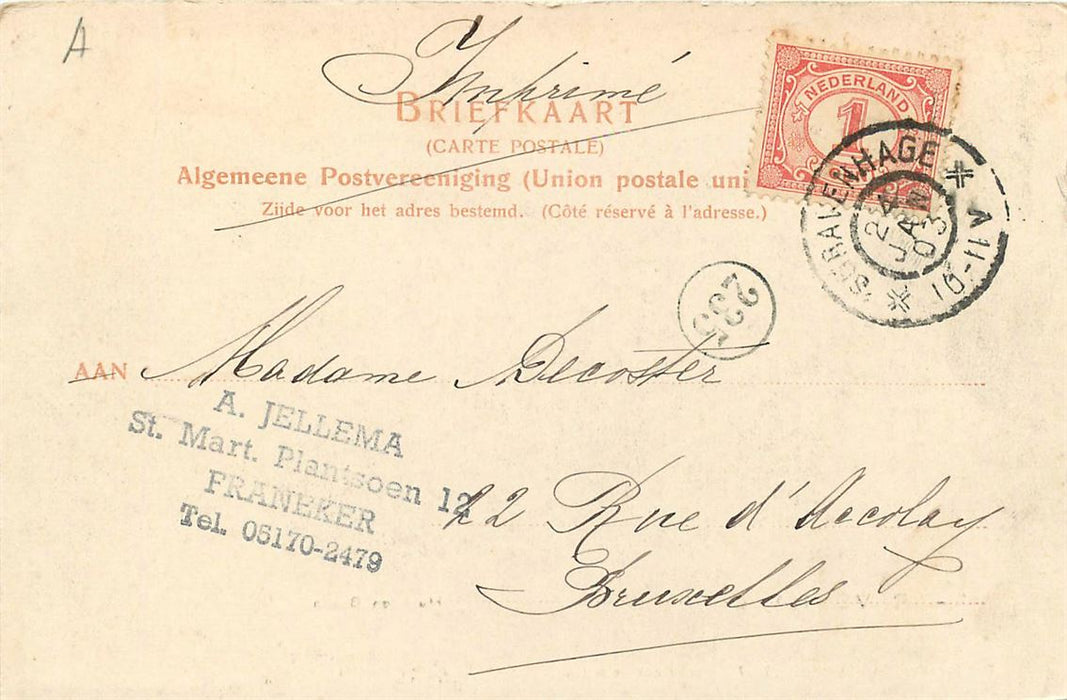 A
Imprimé
BRIEFKAART
(CARTE POSTALE)
Algemeene Postvereeniging (Union postale uni
Zijde voor het adres bestemd. (Côté réservé à l'adresse.)
NEDERLAND
1
'SGRAVENHAGE
JAN
03
10-11 V
235
AAN Madame Decoster
A. JELLEMA
St. Mart. Plantsoen 12
FRANEKER
Tel. 05170-2479
22 Rue d'Accolay
Bruxelles